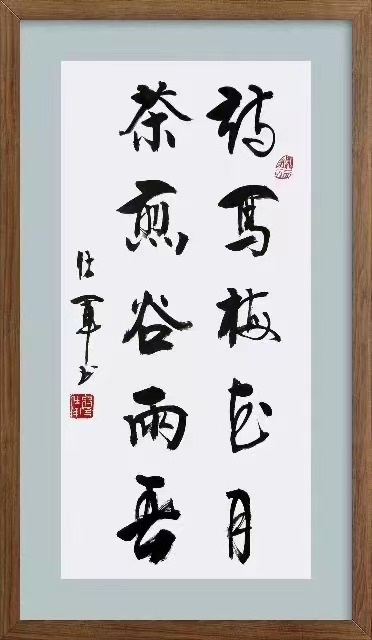 诗写梅花月
茶煎谷雨春
军书